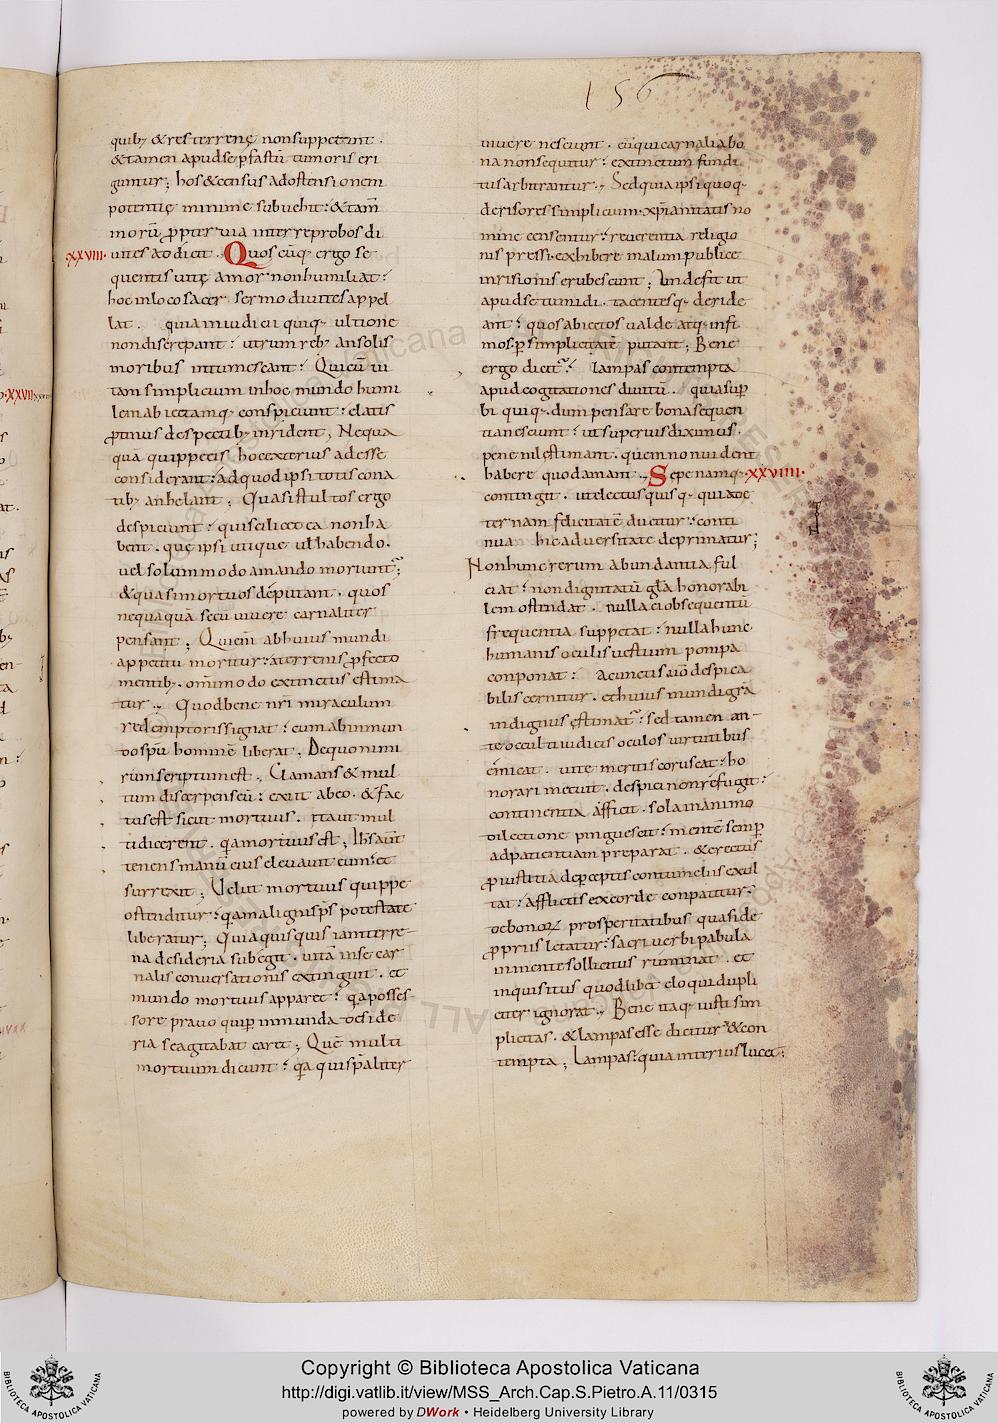 156
quib; & res terrenę non suppetunt .
& tamen apud se p fastū tumoris eri
guntur ; hos & census ad ostensionem
potentię minime subuehit : & tam̄
morū ꝓpter uia inter reprobos di
·XXVIII· uites xō dicit . Quos cūq; ergo se
quentis uitę amor non humiliat :
hoc in loco sacer sermo diuites appel
lat . quia in iudicii quiq; ultione
non discrepant : utrum reb; an solis
moribus intumescant : Qui cū ui
tam simplicium in hoc mundo humi
lem abiectamq; conspiciunt : elatis
ꝓtinus despectib; inrident ; Nequa
quā quippe eis hoc exterius adesse
considerant : ad quod ipsi totis cona
tib; anhelant ; Quasi stultos ergo
despiciunt : qui scilicet ea non ha
bent . quę ipsi utique ul habendo .
uel solummodo amando moriunt̄ ;
& quasi mortuos deputant . quos
nequaquā secū uiuere carnaliter
pensant ; Qui eni abhuius mundi
appetitu moritur : a terrenis ꝓfecto
mentib; . om̄imodo extinctus estima
tur ; Quod bene nr̄i miraculum
redemptoris signat : cum ab inmun
do spū hominē liberat . De quo nimi
rum scriptum est . Clamans & mul
tum discerpens eū : exiit ab eo . & fac
tus est sicut mortuus . ita ut mul
ti dicerent . qa mortuus est ; Ihs aut̄
tenens manū eius eleuauit eum : et
surrexit ; Uelut mortuus quippe
ostenditur : qam maligni sps potestate
liberatur ; Quia quisquis iam terre-
na desideria subegit . uitā in se car
nalis conuersationis extinguit . et
mundo mortuus apparet : qa posses-
sore prauo qui p inmunda deside
ria se agitabat caret ; Quē multi
mortuum dicunt : qa qui spaliter
uiuere nesciunt . eū qui carnalia bo
na non sequitur : extinctum fundi
tus arbitrantur ; Sed quia ipsi quoq;
derisores simplicium . xpianitatis no
mine censentur : reuerentia religio
nis pressi . exhibere malum publice
inrisionis erubescunt ; Unde fit ut
apud se tumidi . tacentesq; deride
ant : quos abiectos ualde atq; infi
mos . p simplicitatē putant ; Bene
ergo dicit̄ : Lampas contempta
apud cogitationes diuitū . quia sup
bi quiq; . dum pensare bona sequen
tia nesciunt : ut superius diximus .
pene nil estimant . quem non uident
habere quod amant . Sepe namq; ·XXVIIII·
contingit . ut electus quisq; qui ad ę
ternam felicitatē ducitur : conti
nua hic aduersitate deprimatur ;
Non hunc rerum abundantia ful
ciat : non dignitatū gl̄a honorabi
lem ostendat . nulla ei obsequentū
frequentia suppetat : nulla hunc
humanis oculis uestium pompa
conponat : A cunctis aūo despica
bilis cernitur . et huius mundi gr̄a
indignus estimat̄ : sed tamen an-
te occulti iudicis oculos uirtutibus
emicat . uite meritis coruscat : ho
norari metuit . despici non refugit :
continentia afficit . sola in animo
dilectione pinguescit : mentē semp
ad patientiam preparat . & erectus
ꝓ iustitia de pceptis contumeliis exul
tat : afflictis ex corde conpatitur :
de bonoꝝ prosperitatibus quasi de
ꝓpriis letatur : sacri uerbi pabula
in mente sollicitus ruminat . et
inquisitus quodlibet eloqui dupli
citer ignorat . Bene itaq; iusti sim
plicitas . & lampas esse dicitur : & con
tempta ; Lampas : quia interius lucet :
Copyright © Biblioteca Apostolica Vaticana
http://digi.vatlib.it/view/MSS_Arch.Cap.S.Pietro.A.11/0315
powered by DWork • Heidelberg University Library
BIBLIOTECA APOSTOLICA VATICANA
BIBLIOTECA APOSTOLICA VATICANA